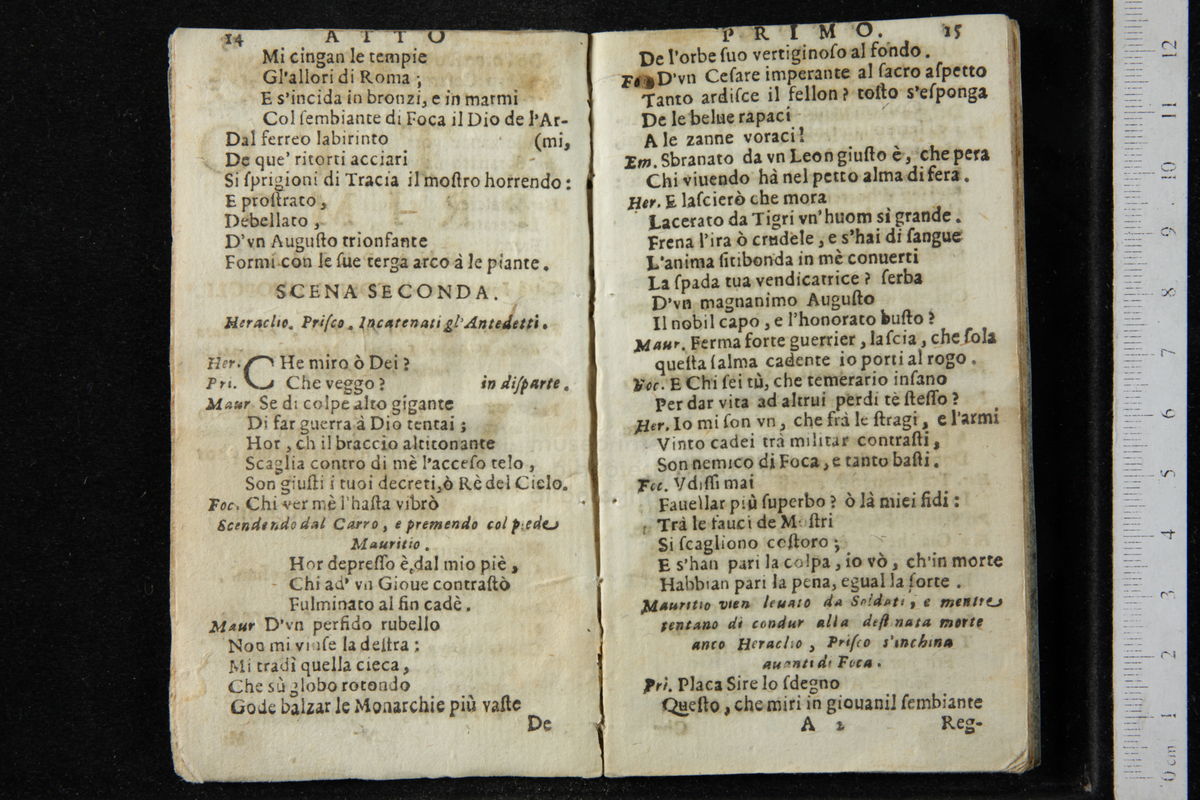 14 ATTO
Mi cingan le tempie
Gl'allori di Roma;
E s'incida in bronzi, e in marmi
Col ſembiante di Foca il Dio de l'Ar-
Dal ferreo labirinto (mi,
De que' ritorti acciari
Si ſprigioni di Tracia il moſtro horrendo:
E proſtrato,
Debellato,
D'vn Auguſto trionfante
Formi con le ſue terga arco à le piante.
SCENA SECONDA.
Heraclio. Priſco. Incatenati gl'Antedetti.
Her. CHe miro ò Dei?
Pri. Che veggo? in diſparte.
Maur Se di colpe alto gigante
Di far guerra à Dio tentai;
Hor, ch il braccio altitonante
Scaglia contro di mè l'acceſo telo,
Son giuſti i tuoi decreti, ò Rè del Cielo.
Foc. Chi ver mè l'haſta vibrò
Scendendo dal Carro, e premendo col piede
Mauritio.
Hor depreſſo è dal mio piè,
Chi ad' vn Gioue contraſtò
Fulminato al fin cadè.
Maur D'vn perfido rubello
Non mi vinſe la deſtra;
Mi tradì quella cieca,
Che sù globo rotondo
Gode balzar le Monarchie più vaſte
De
PRIMO. 15
De l'orbe ſuo vertiginoſo al fondo.
Fo D'vn Ceſare imperante al ſacro aſpetto
Tanto ardiſce il fellon? toſto s'eſponga
De le belue rapaci
A le zanne voraci!
Em. Sbranato da vn Leon giuſto è, che pera
Chi viuendo hà nel petto alma di fera.
Her. E laſcierò che mora
Lacerato da Tigri vn'huom sì grande.
Frena l'ira ò crudele, e s'hai di ſangue
L'anima ſitibonda in mè conuerti
La ſpada tua vendicatrice? ſerba
D'vn magnanimo Auguſto
Il nobil capo, e l'honorato buſto?
Maur. Ferma forte guerrier, laſcia, che ſola
queſta ſalma cadente io porti al rogo.
Foc. E Chi ſei tù, che temerario inſano
Per dar vita ad altrui perdi tè ſteſſo?
Her. Io mi ſon vn, che frà le ſtragi, e l'armi
Vinto cadei trà militar contraſti,
Son nemico di Foca, e tanto baſti.
Foc. Vdiſſi mai
Fauellar più ſuperbo? ò là miei fidi:
Trà le fauci de Moſtri
Si ſcagliono coſtoro;
E s'han pari la colpa, io vò, ch'in morte
Habbian pari la pena, egual la ſorte.
Mauritio vien leuato da Soldati, e mentre
tentano di condur alla deſtinata morte
anco Heraclio, Priſco s'inchina
auanti di Foca.
Pri. Placa Sire lo ſdegno
Queſto, che miri in giouanil ſembiante
A 2 Reg-
0 cm 1 2 3 4 5 6 7 8 9 10 11 12